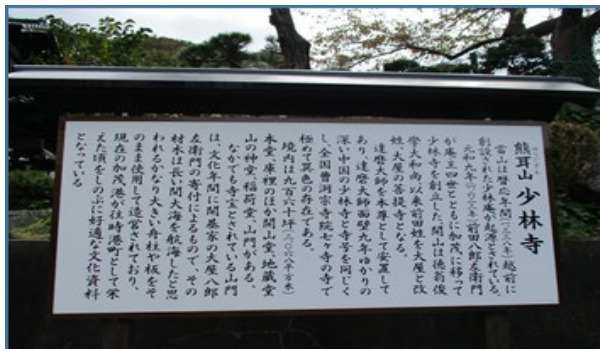 熊耳山 少林寺
当山は暦応年間(一三三八年)越前に
創設された少林庵が起源とされている。
元和九年(一六二三年)前田八郎左衛門
が庵主四世とともに加茂に移って
少林寺を創立した。開山は徳翁俊
學大和尚、以来前田姓を大屋と改
姓、大屋の菩提寺となる。
達磨大師を本尊として安置して
あり、達磨大師面壁九年ゆかりの
深い中国の少林寺と寺号を同じく
し、全国曹洞宗寺院七ヶ寺の寺で
極めて異色の存在である。
境内は九百六十坪(三〇六八平方米)
本堂、庫裡のほか開山堂、地蔵堂
山の神堂、稲荷堂、山門がある。
なかでも寺宝とされている山門
は、文化年間に開基家の大屋八郎
左衛門の寄付によるもので、その
材木は長い間大海を航海したと思
われるかなり大きい舟柱や板をそ
のまま使用して造営されており、
現在の加茂港が往時港町として栄
えた頃をしのぶに好適な文化資料
となっている